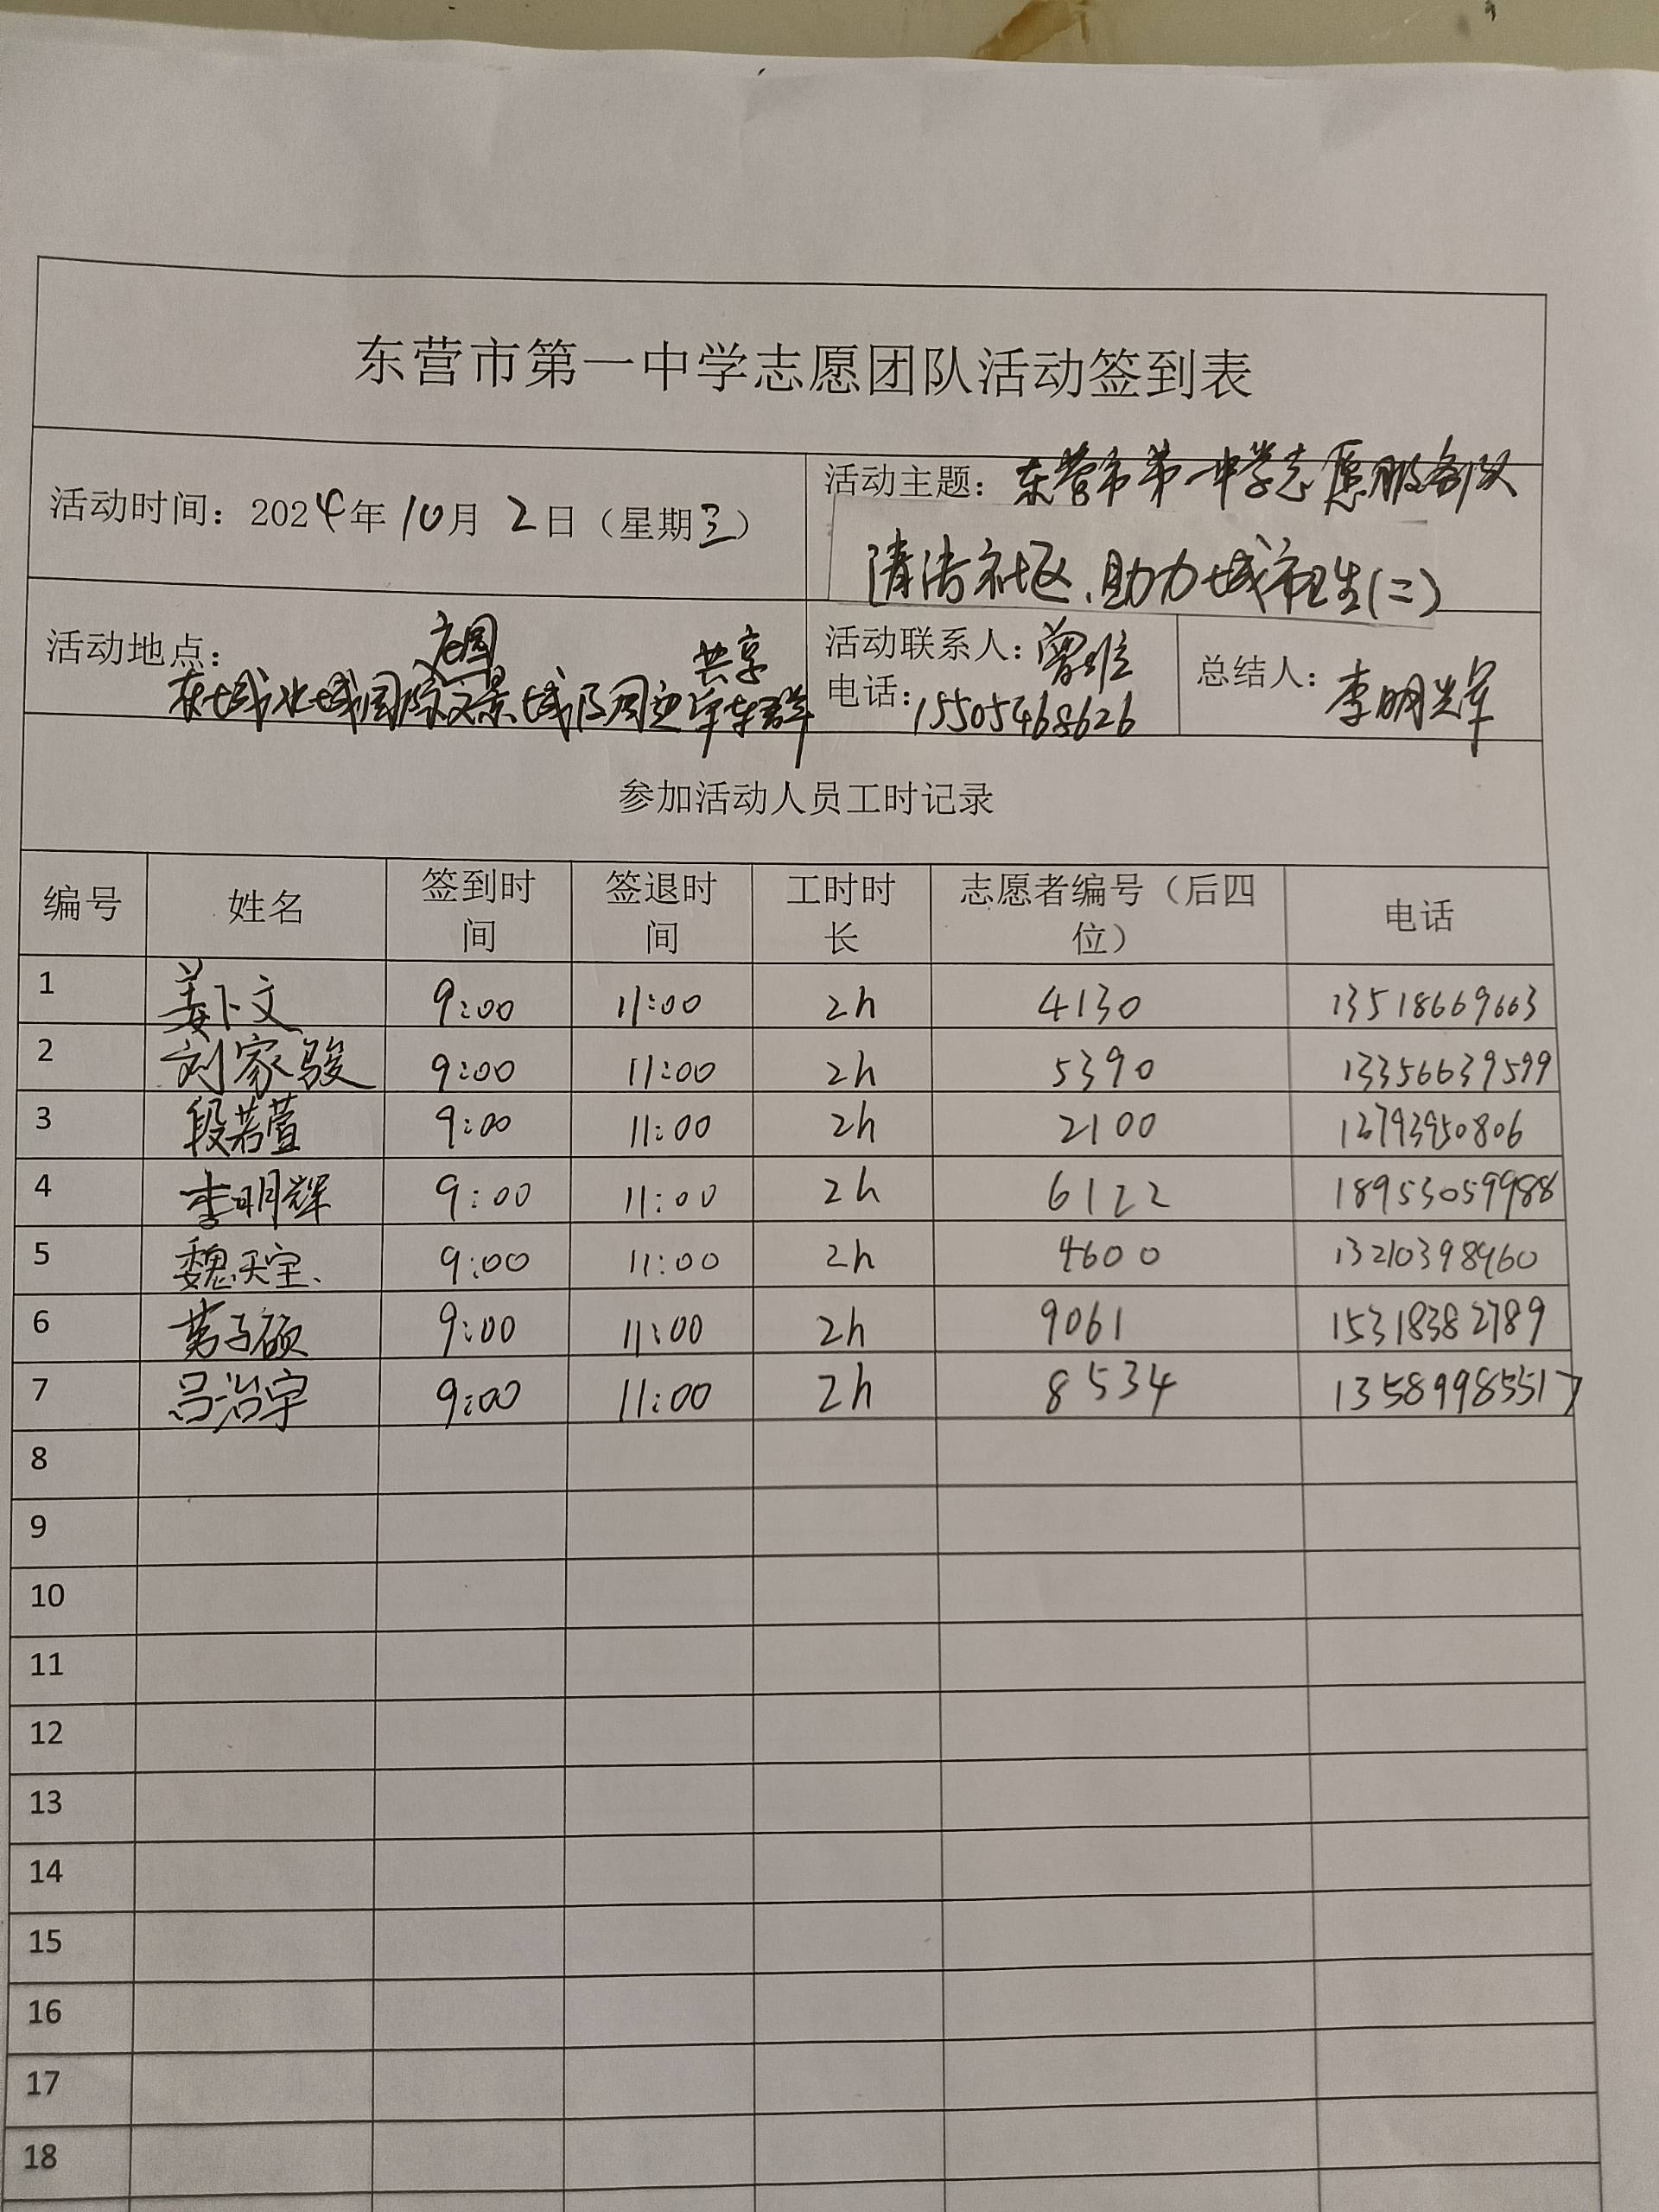 东营市第一中学志愿团队活动签到表
活动时间：2024年10月2日（星期三） 活动主题：东营市第一中学志愿服务队
清洁社区、助力城市卫生(二)
活动地点： 东城水城国际文景城及周边共享单车群
活动联系人：曾 电话：15505468626 总结人：李明辉
参加活动人员工时记录
编号 姓名 签到时间 签退时间 工时时长 志愿者编号（后四位） 电话
1 姜卜文 9:00 11:00 2h 4130 13518669663
2 刘家骏 9:00 11:00 2h 5390 13356639599
3 段若萱 9:00 11:00 2h 2100
4 李明辉 9:00 11:00 2h 6122 18953059988
5 魏天宝 9:00 11:00 2h 4600 13210398960
6 子硕 9:00 11:00 2h 9061 15318382789
7 吕治宇 9:00 11:00 2h 8534 13589985517
8
9
10
11
12
13
14
15
16
17
18